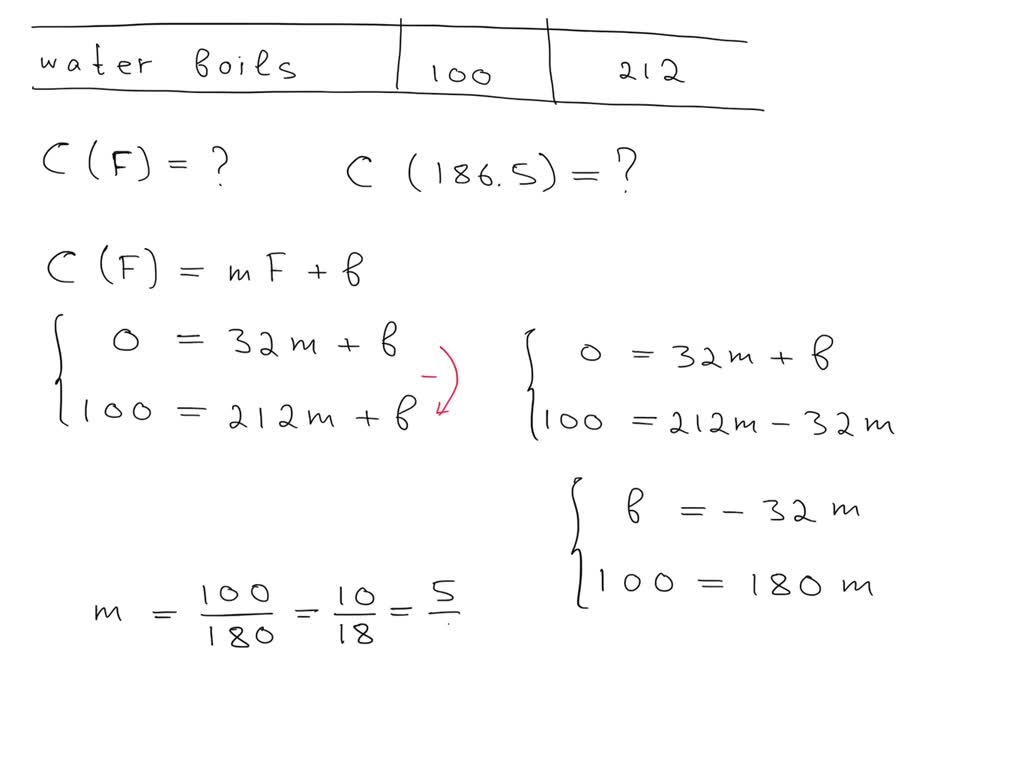 water boils 100 212
C (F) = ? C (186.5) = ?
C (F) = m F + b
0 = 32m + b
100 = 212m + b
-
0 = 32m + b
100 = 212m - 32m
b = - 32 m
100 = 180 m
m = 100/180 = 10/18 = 5/